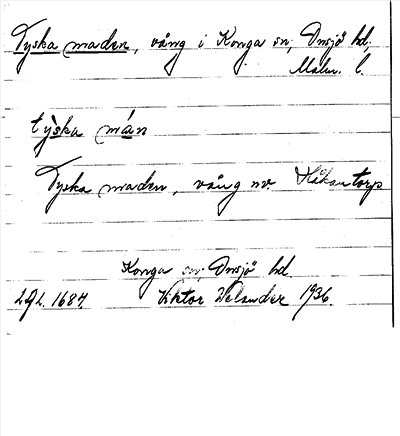 Tyska maden, vång i Konga sn, Onsjö hd,
Malm. l.
tỳska mán
Tyska maden, vång nv. Håkantorp
Konga sn, Onsjö hd.
LAL. 1687. Viktor Welander 1936.